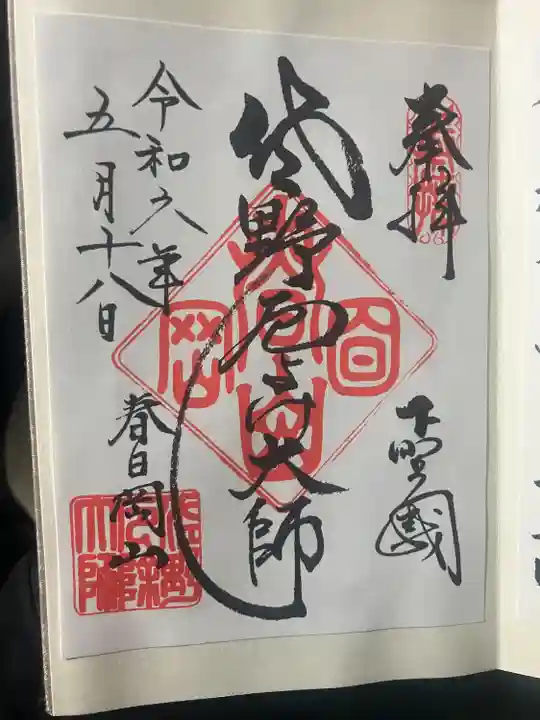 奉拝
下野國
佐野厄よけ大師
春日岡山
令和六年
五月十八日